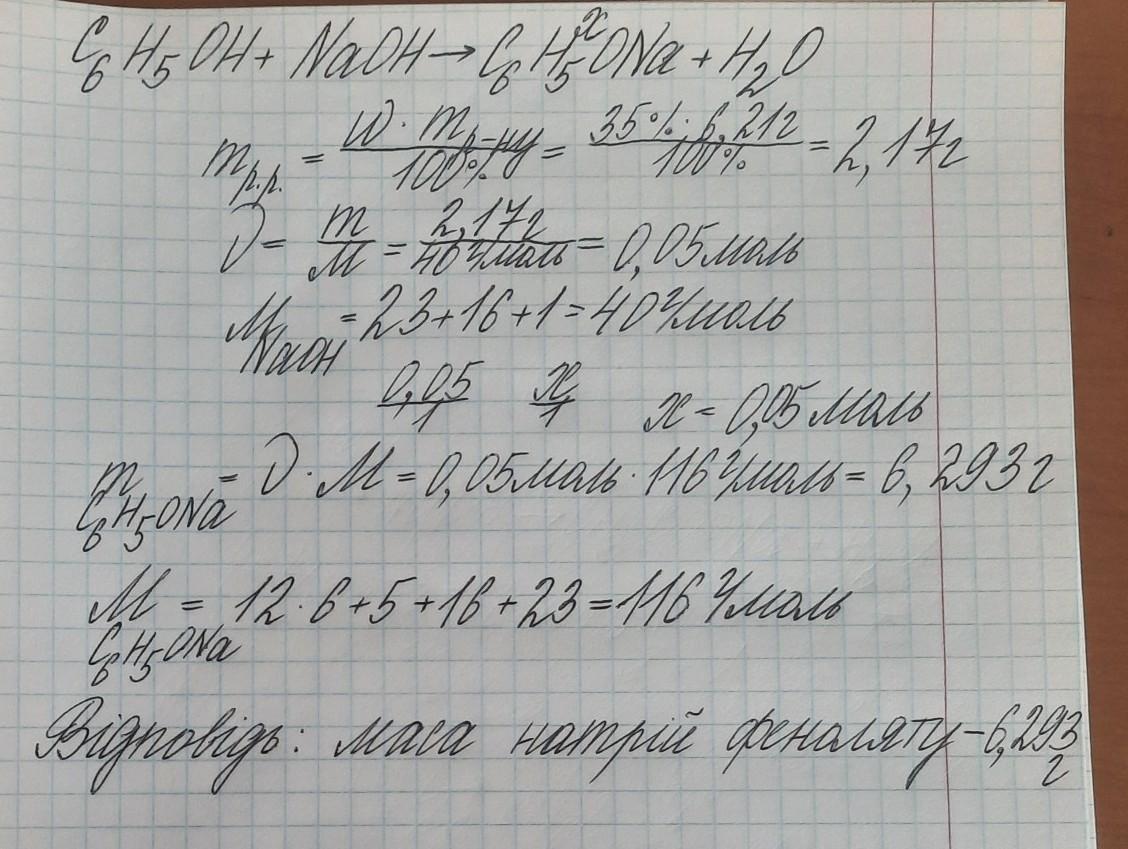 x
C₆H₅OH + NaOH → C₆H₅ONa + H₂O
m р.р. = W · m р-ну / 100% = 35% · 6,21г / 100% = 2,17г
ν = m / M = 2,17г / 40 г/моль = 0,05 моль
M NaOH = 23 + 16 + 1 = 40 г/моль
0,05 / 1 x / 1 x = 0,05 моль
m C₆H₅ONa = ν · M = 0,05 моль · 116 г/моль = 6,293 г
M C₆H₅ONa = 12 · 6 + 5 + 16 + 23 = 116 г/моль
Відповідь: маса натрій феноляту – 6,293
г